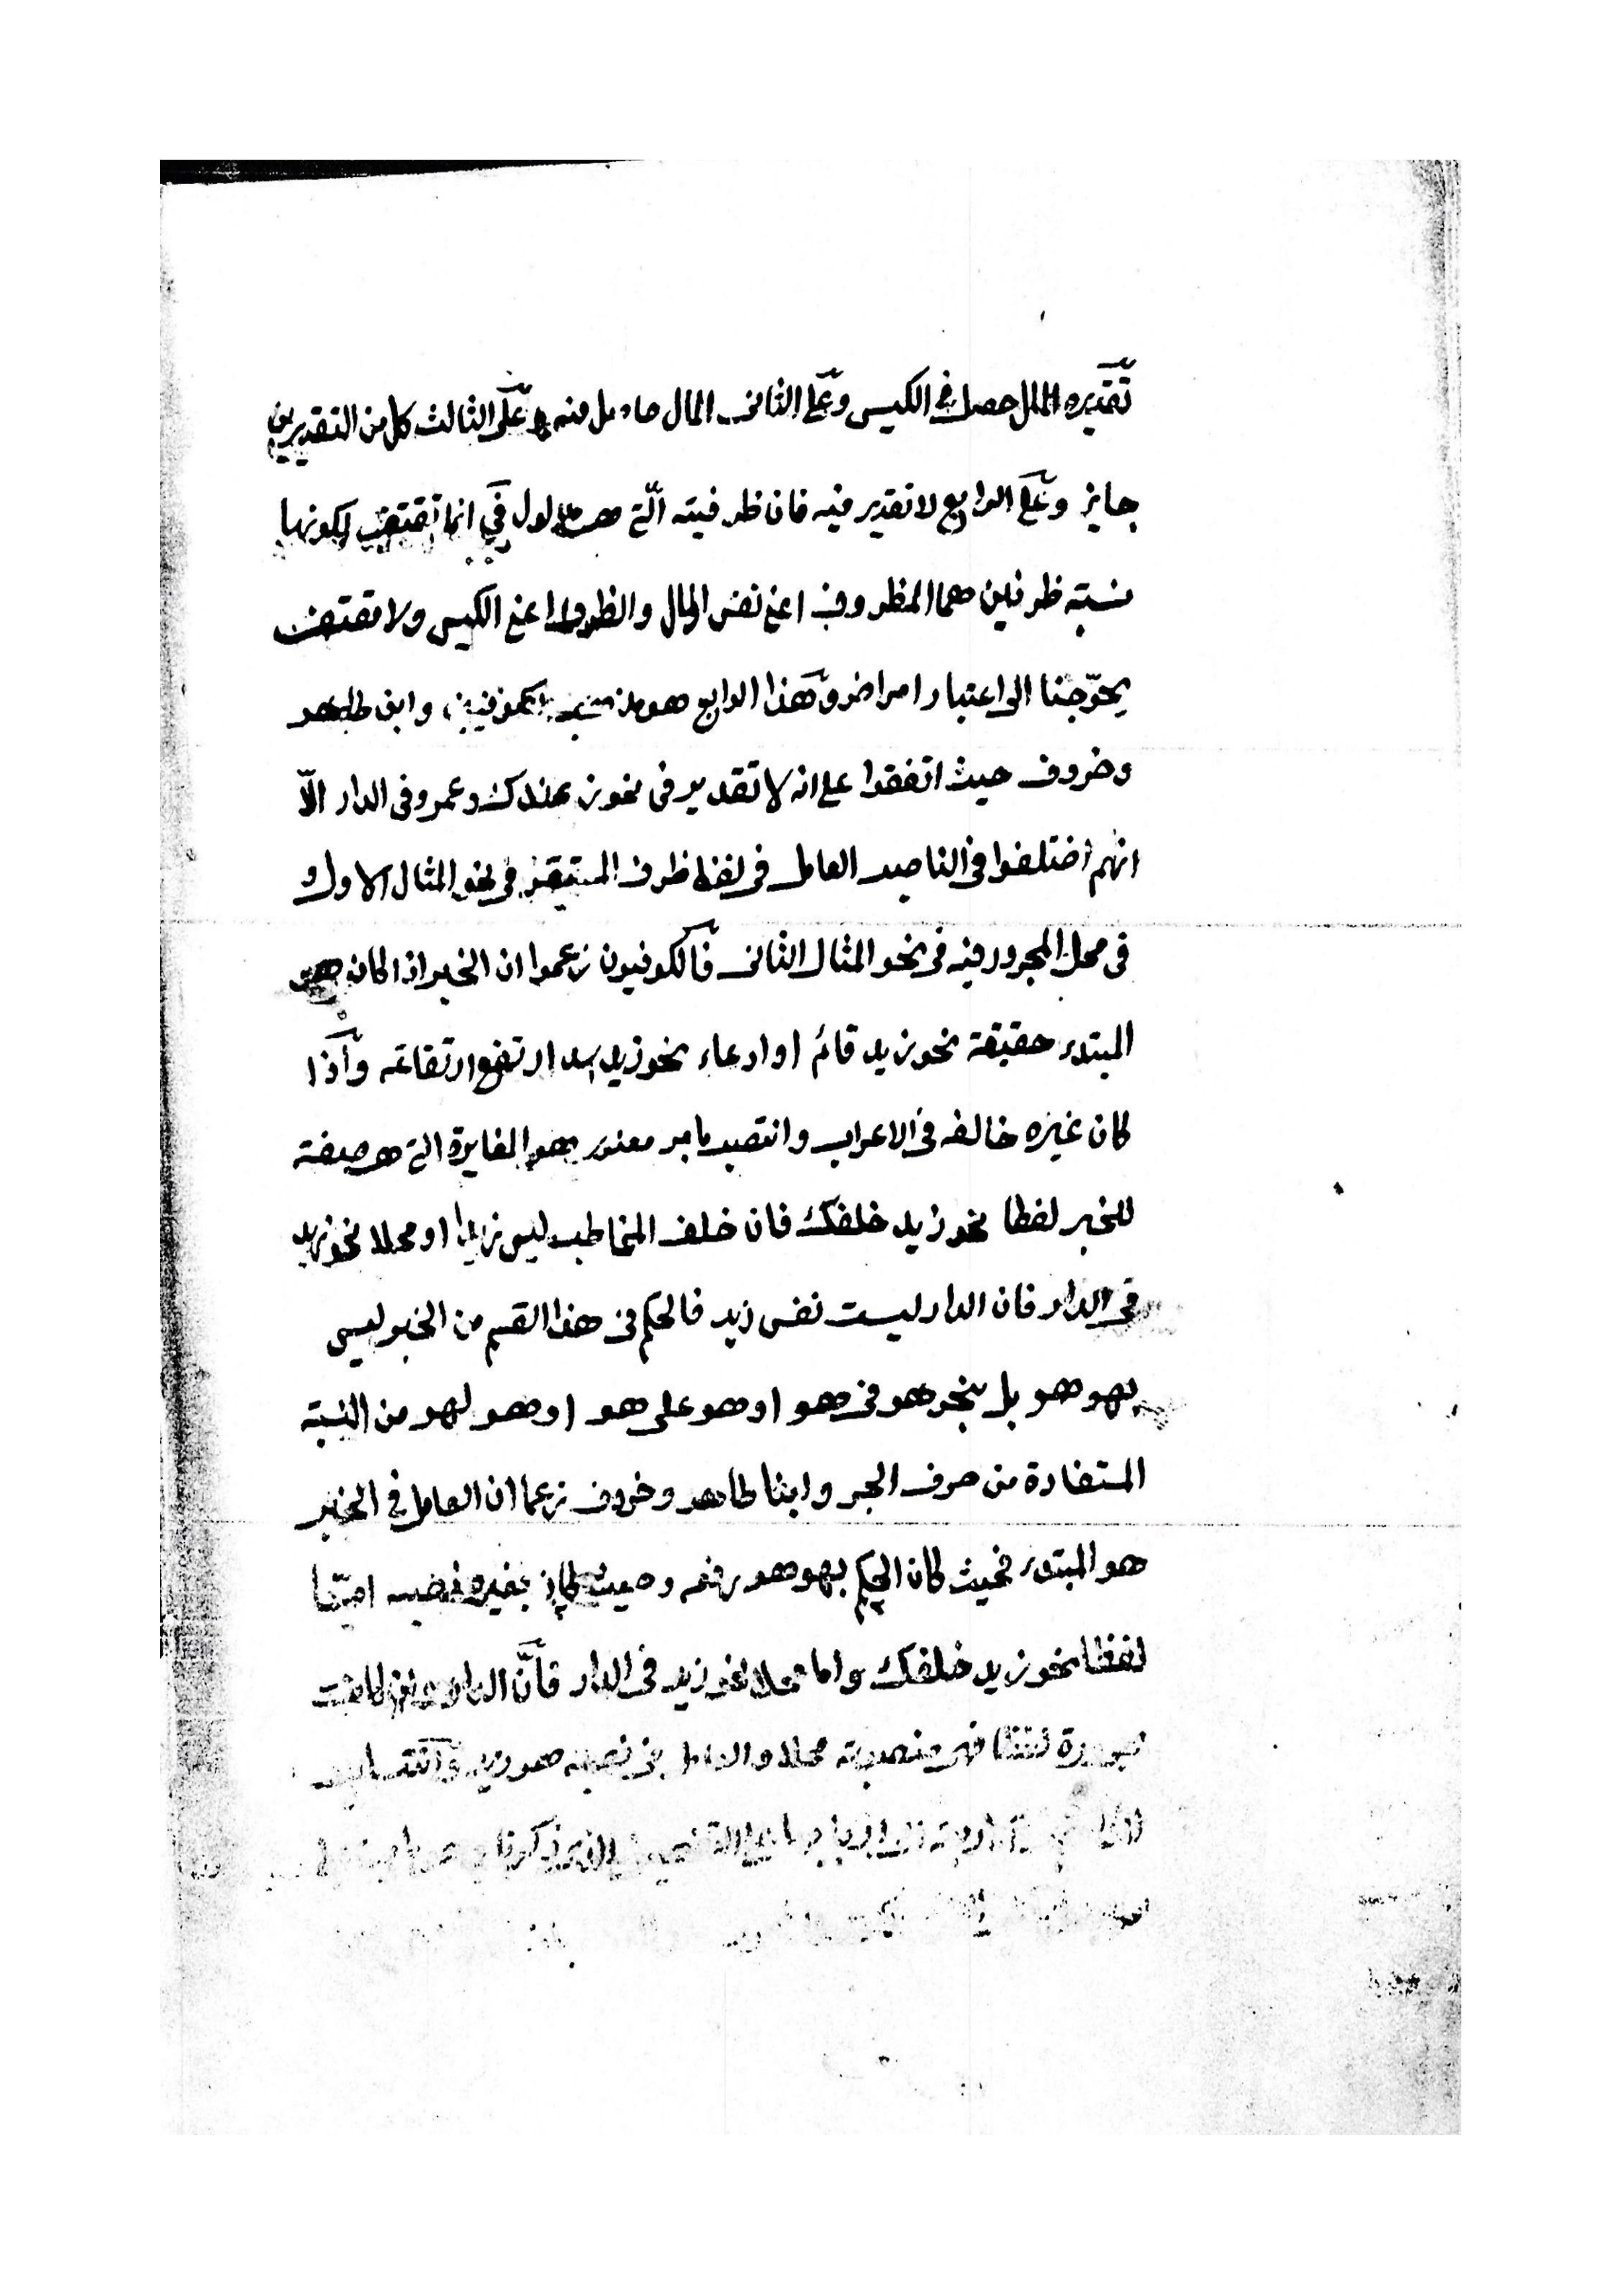 تقديره المال حصل في الكيس وعلى الثانى المال حاصل فيه وعلى الثالث كل من التقديرين
جايز وعلى الرابع لا تقدير فيه فان ظرفيته الّتي هي مدلول في انما تقتضى لكونها
نسبته ظرفين هما المظروف اعنى نفس المال والظرف اعنى الكيس ولا مقتضى
يحوّجنا الى اعتبار امر اخر وهذا الرابع هو مذهب الكوفيين وابن طاهر
وخروف حيث اتفقوا على انه لا تقدير فى نحو زيد عندك وعمرو فى الدار الّا
انهم اختلفوا فى الناصب العامل فى لفظ ظرف المستقر فى نحو المثال الاول و
فى محل المجرور فيه فى نحو المثال الثانى فالكوفيون زعموا ان الخبر اذا كان هو
المبتدء حقيقة نحو زيد قائم او ادعاء نحو زيد اسد ارتفع ارتفاعه واذا
كان غيره خالفه فى الاعراب وانتصب بامر معنوى وهو المغايرة التى هى صفة
للخبر لفظا نحو زيد خلفك فان خلف المخاطب ليس زيدا او محلا نحو زيد
فى الدار فان الدار ليست نفس زيد فالحكم فى هذا القسم من الخبر ليس
بهو هو بل بنحو هو فى هو او هو على هو او هو لهو من النسبة
المستفادة من حرف الجر وابنا طاهر وخروف زعما ان العامل فى الخبر
هو المبتدء فحيث كان الحكم بهو هو رفعه وحيث كان بغيره نصبه امّا
لفظا نحو زيد خلفك واما محلا نحو زيد فى الدار فانّ الدار وان كانت
مجرورة لفظا فهى منصوبة محلا والعامل فى نصبه هو زيد